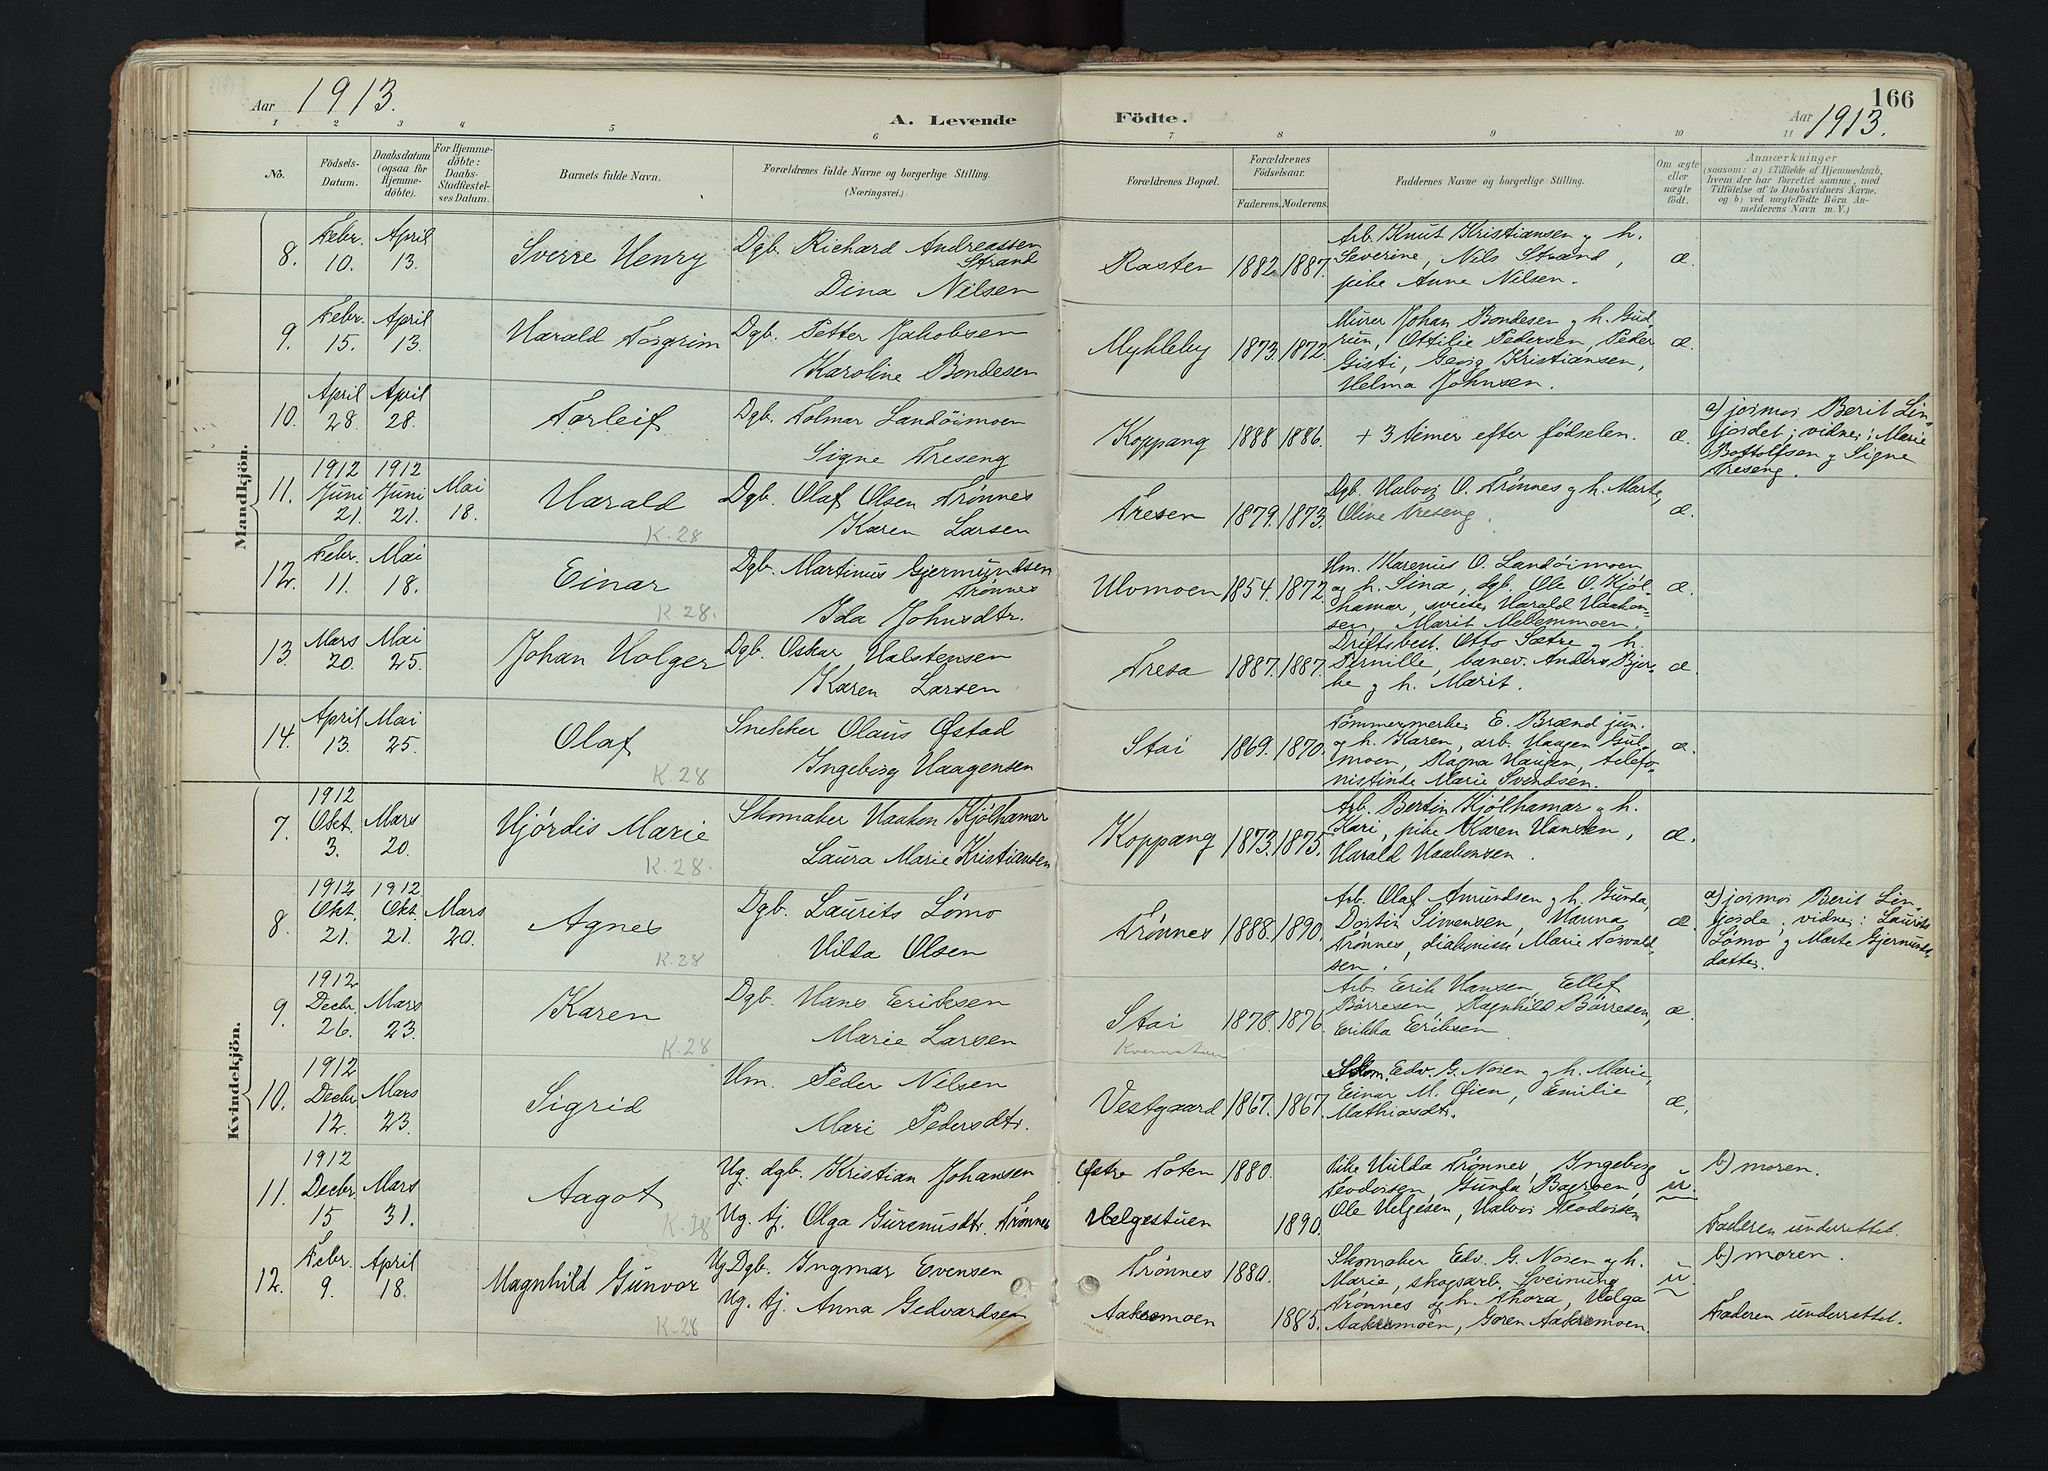 166
Aar 1913.
A. Levende Födte.
Aar 1913.
1 2 3 4 5 6 7 8 9 10 11
No.
Födsels-Datum.
Daabsdatum (ogsaa for Hjemme-döbte).
For Hjemme-döbte: Daabs-Stadfæstel-ses Datum.
Barnets fulde Navn.
Forældrenes fulde Navne og borgerlige Stilling.
(Næringsvei.)
Forældrenes Bopæl.
Forældrenes Födselsaar.
Faderens. Moderens.
Faddernes Navne og borgerlige Stilling.
Om ægte eller uægte födt.
Anmærkninger
(saasom: a) i Tilfælde af Hjemmedaab, hvem der har forrettet samme, med Tilföielse af to Daabsvidners Navne, og b) ved uægtefödte Börn An-melderens Navn m. V.)
Mandkjön.
8. Febr. 10. April 13. Sverre Henry
Dgb. Richard Andreassen Strand
Dina Nilsen
Rasten 1882. 1887.
Arb. Knut Kristiansen og h.
Severine, Nils Strand,
pike Anne Nilsen.
æ.
9. Febr. 15. April 13. Harald Torgrim
Dgb. Petter Jakobsen
Karoline Bondesen
Mykleby 1873. 1872.
Murer Johan Bondesen og h. Gud-
run, Ottilie Pedersen, Peder
Gisti, Georg Kristiansen,
Helma Johnsen.
æ.
10. April 28. April 28. Torleif
Dgb. Tolmar Landöimoen
Signe Treseng
Koppang 1888 1886.
+ 3 timer efter födselen.
æ.
a) jormor Berit Lin-
jordet; vidner: Marie
Bottolfsen og Signe
Treseng.
11. 1912 Juni 21. 1912 Juni 21. Mai 18. Harald
K. 28
Dgb. Olaf Olsen Trønnes
Karen Larsen
Tresen 1879. 1873.
Dgb. Halvor O. Trønnes og h. Marte,
Oline Treseng.
æ.
12. Febr. 11. Mai 18. Einar
K. 28.
Dgb. Martinus Gjermundsen
Trønnes
Ida Johnsdtr.
Ulvmoen 1854. 1872.
Hm. Karenus O. Landöimoen
og h. Lina, dgb. Ole O. Kjöl-
hamar, Harald Haakon-
sen, Marit Mellemmoen.
æ.
13. Mars 20. Mai 25. Johan Holger
Dgb. Oskar Halstensen
Karen Larsen
Tresa 1887. 1887.
Driftsbest. Otto Sætre og h.
Pernille, banev. Anders Bjer-
ke og h. Marit.
æ.
14. April 13. Mai 25. Olaf
K. 28
Snekker Olaus Østad
Ingeborg Haagensen
Stai 1869. 1870.
Tømmermerker E. Brænd jun.
og h. Karen, arb. Haagen Gul-
moen, Ragna Haugen, telefo-
nistinde Marie Svendsen.
æ.
Kvindekjön.
7. 1912 Okt. 3. Mars 20. Hjördis Marie
K. 28.
Skomaker Haakon Kjølhamar
Laura Marie Kristiansen
Koppang 1873. 1875.
Arb. Bertin Kjølhamar og h.
Kari, pike Karen Hansen,
Harald Haakonsen.
æ.
8. 1912 Okt. 21. 1912 Okt. 21. Mars 20. Agnes
K. 28
Dgb. Laurits Lømo
Hilda Olsen
Trønnes 1888. 1890.
Arb. Olaf Amundsen og h. Gunda,
Dortin Simensen, Hanna
Trønnes, diakonisse Marie Torvald-
sen.
æ.
a) jormor Berit Lin-
jorde; vidner: Laurits
Lømo og Marte Gjermunds-
datter.
9. 1912 Decbr. 26. Mars 23. Karen
K. 28
Dgb. Hans Eriksen
Marie Larsen
Stai 1878. 1876.
Arb. Erik Hansen, Ellef
Børresen, Ragnhild Børresen,
Erikka Eriksen
æ.
10. 1912 Decbr. 12. Mars 23. Sigrid
Hm. Peder Nilsen
Mari Pedersdtr.
Vestgaard 1867. 1867.
Skom. Edv. G. Noren og h. Marie,
Einar M. Øien, Emilie
Mathiasdtr.
æ.
11. 1912 Decbr. 15 Mars 31. Aagot
K. 28
Ug. dgb. Kristian Johansen
Ug. tj. Olga Gurenusdtr. Trønnes
Østre Toten 1880.
Helgestuen 1890.
Pike Hilda Trønnes, Ingeborg
Teodorsen, Gunda Bagroen,
Ole Helgesen, Halvor Teodorsen
u.
b) moren.
Faderen underrettet.
12. Febr. 9. April 18. Magnhild Gunvor
K. 28
Ug Dgb. Ingmar Evensen
Ug. tj. Anna Gedvardsen
Trønnes 1880.
Aakremoen 1885.
Skomaker Edv. G. Noren og h.
Marie, skogsarb. Sveinung
Trønnes og h. Thora, Helga
Aakremoen, Goren Aakremoen.
u.
b) moren.
Faderen underrettet.